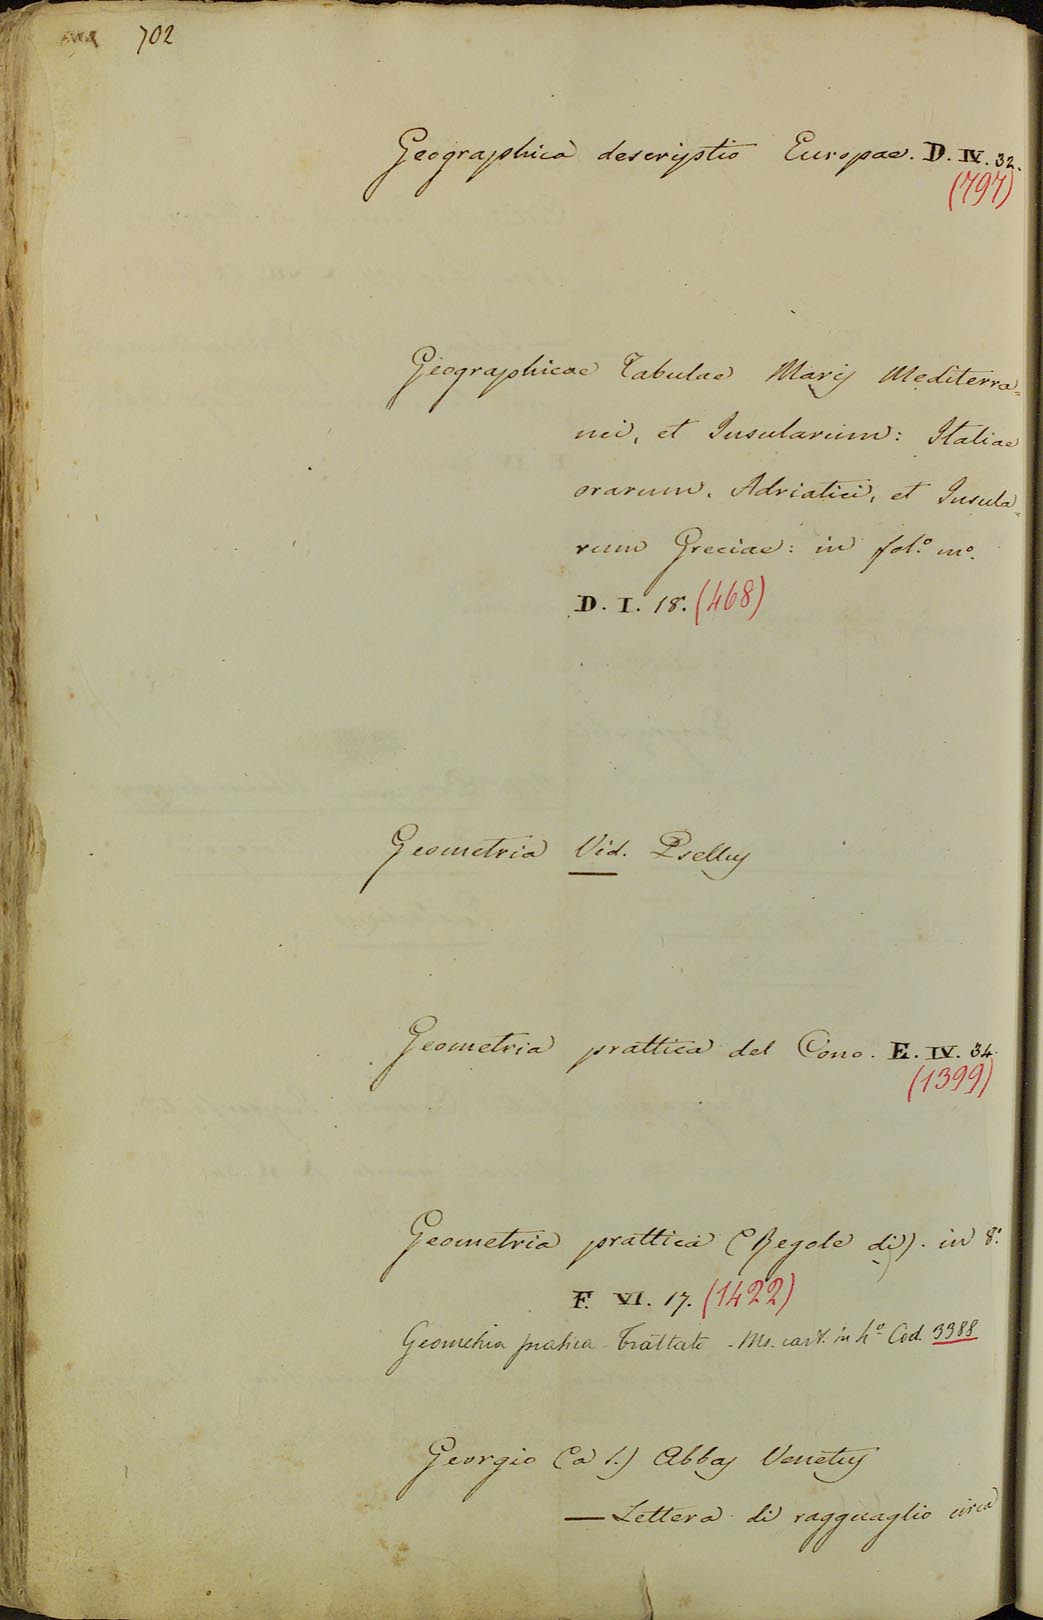 702
Geographica descriptio Europae. D. IV. 32.
(797)
Geographicae Tabulae Maris Mediterra=
nei, et Insularum: Italiae
orarum. Adriatici, et Insula=
rum Greciae: in fol.º mº.
D. I. 18. (468)
Geometria Vid. Psellus
Geometria prattica del Cono. E. IV. 34.
(1399)
Geometria prattica (Regole di). in 8.º
F. VI. 17. (1422)
Geometria pratica - Trattato - Ms. cart. in 4º Cod. 3388
Georgio (a S.) Abbas Venetus
— Lettera di ragguaglio circa